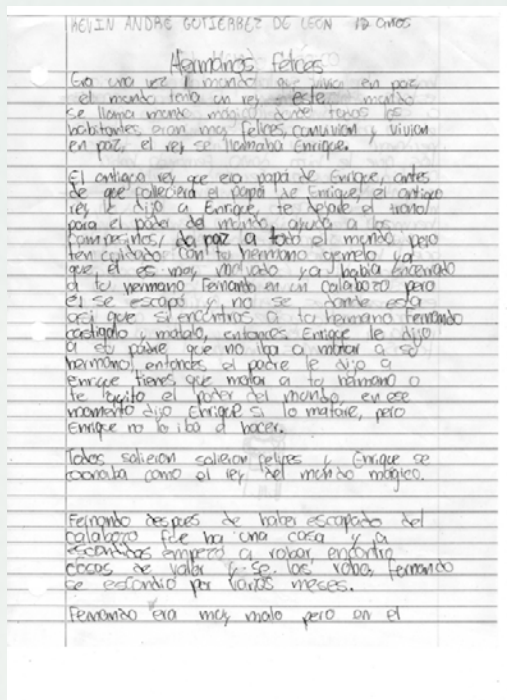 KEVIN ANDRE GUTIERREZ DE LEON 12 años
Hermanos felices
Era una vez 1 mundo que vivia en paz,
el mundo tenia un rey este mundo
se llama mundo magico donde todos los
habitantes eran muy felices, comian y vivian
en paz, el rey se llamaba Enrique.
El antiguo rey que era papá de Enrique, antes
de que falleciera el papá de Enrique, el antiguo
rey le dijo a Enrique, te dejare el trono
para el poder del mundo, ayuda a los
campesinos, da paz a todo el mundo pero
ten cuidado con tu hermano gemelo ya
que, el es muy malvado ya habia encerrado
a tu hermano Fernando en un calabozo pero
el se escapó y no se donde esta
asi que si encontras a tu hermano Fernando
castigalo y matalo, entonces Enrique le dijo
a su padre que no iba a matar a su
hermano, entonces el padre le dijo a
enrique tienes que matar a tu hermano o
te quito el poder del mundo, en ese
momento dijo Enrique si lo matare, pero
Enrique no lo iba a hacer.
Todos salieron salieron felices y Enrique se
coronaba como el rey del mundo magico.
Fernando despues de haber escapado del
calabozo fue ha una casa y a
escondidas empezó a robar, encontro
cocas de valor y se las robo, fernando
se escondio por varios meses.
Fernando era muy malo pero en el